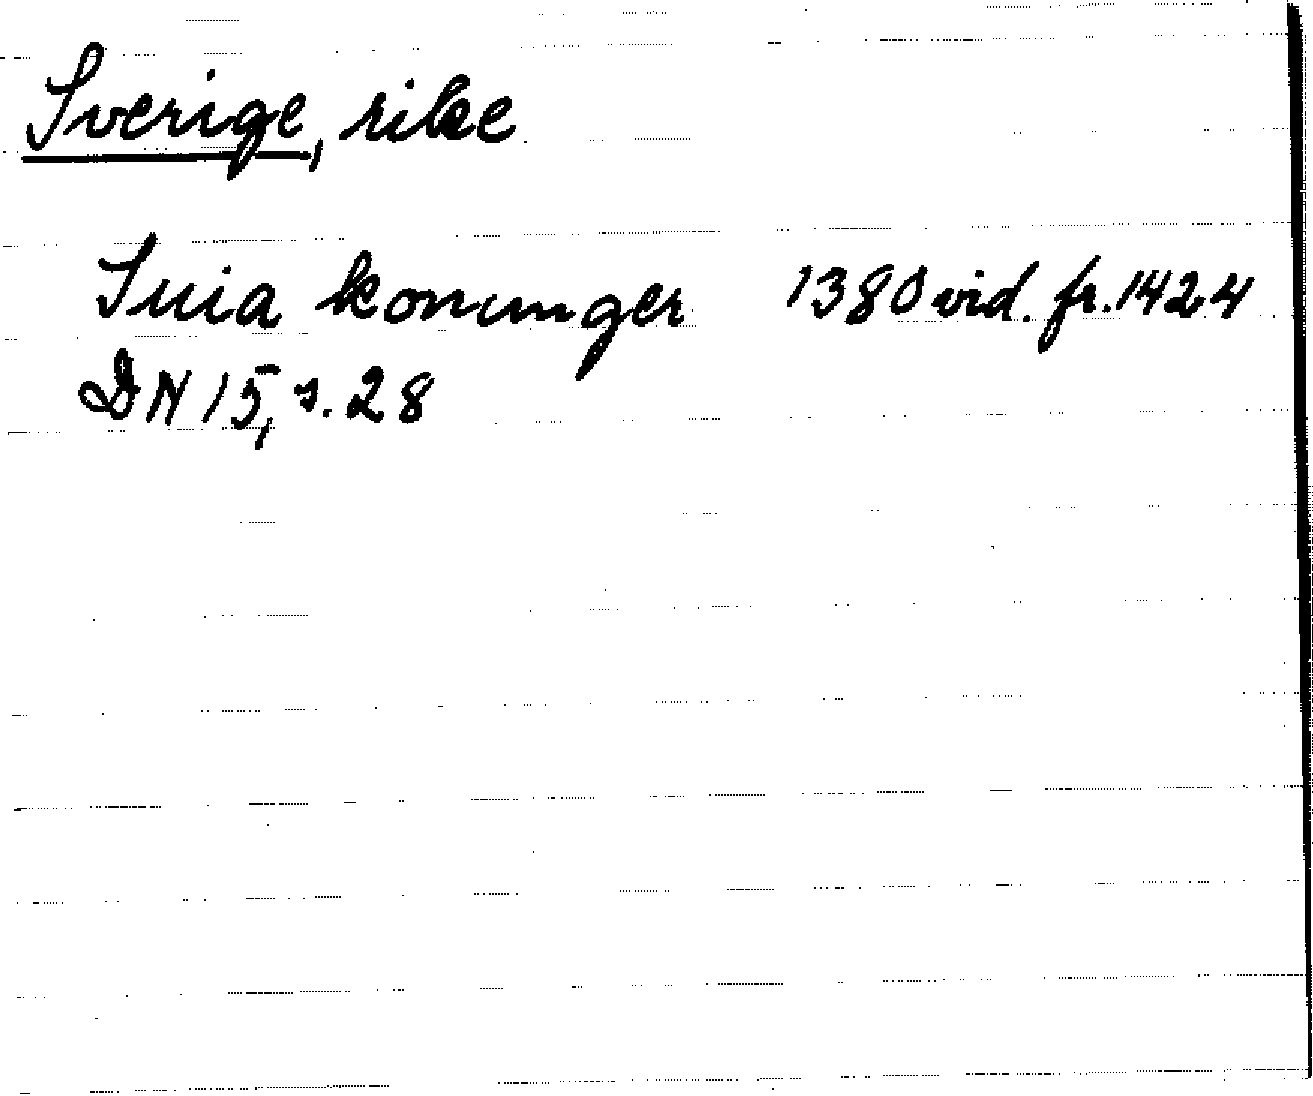 Sverige, rike
Suia konunger 1380 vid. fr. 1424
DN 15, s. 28